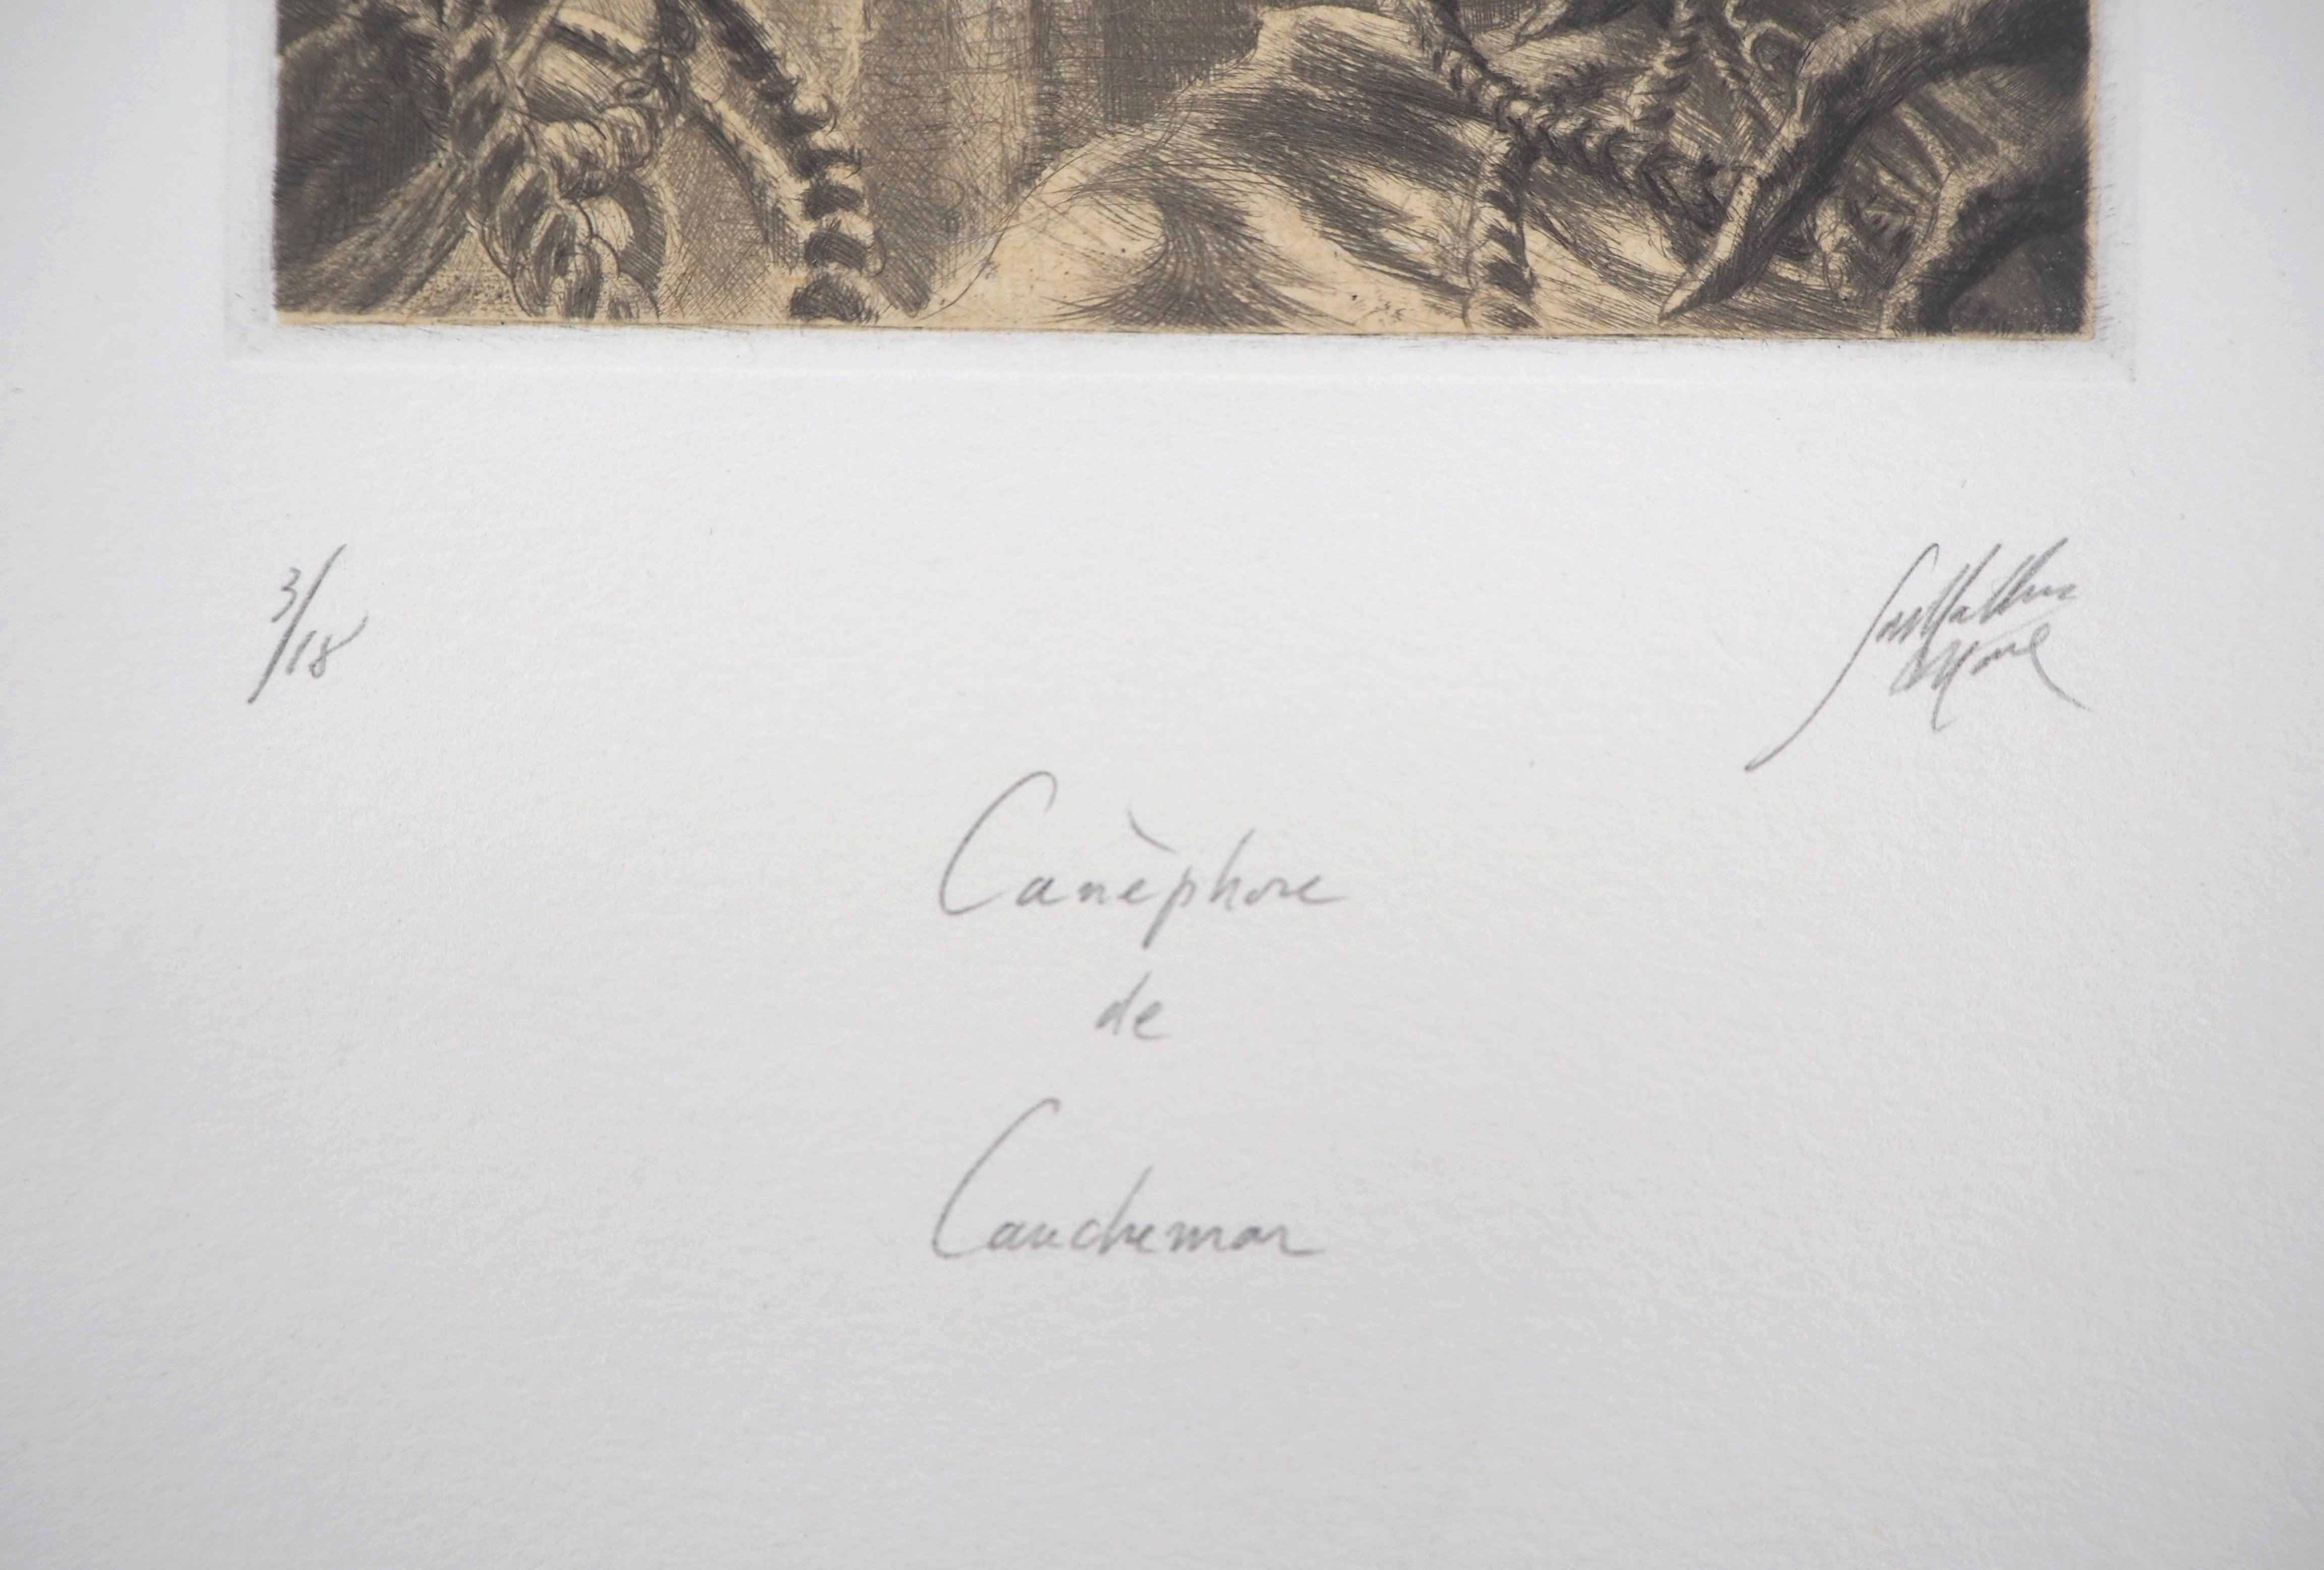 3/18
Canèphore
de
Cauchemar